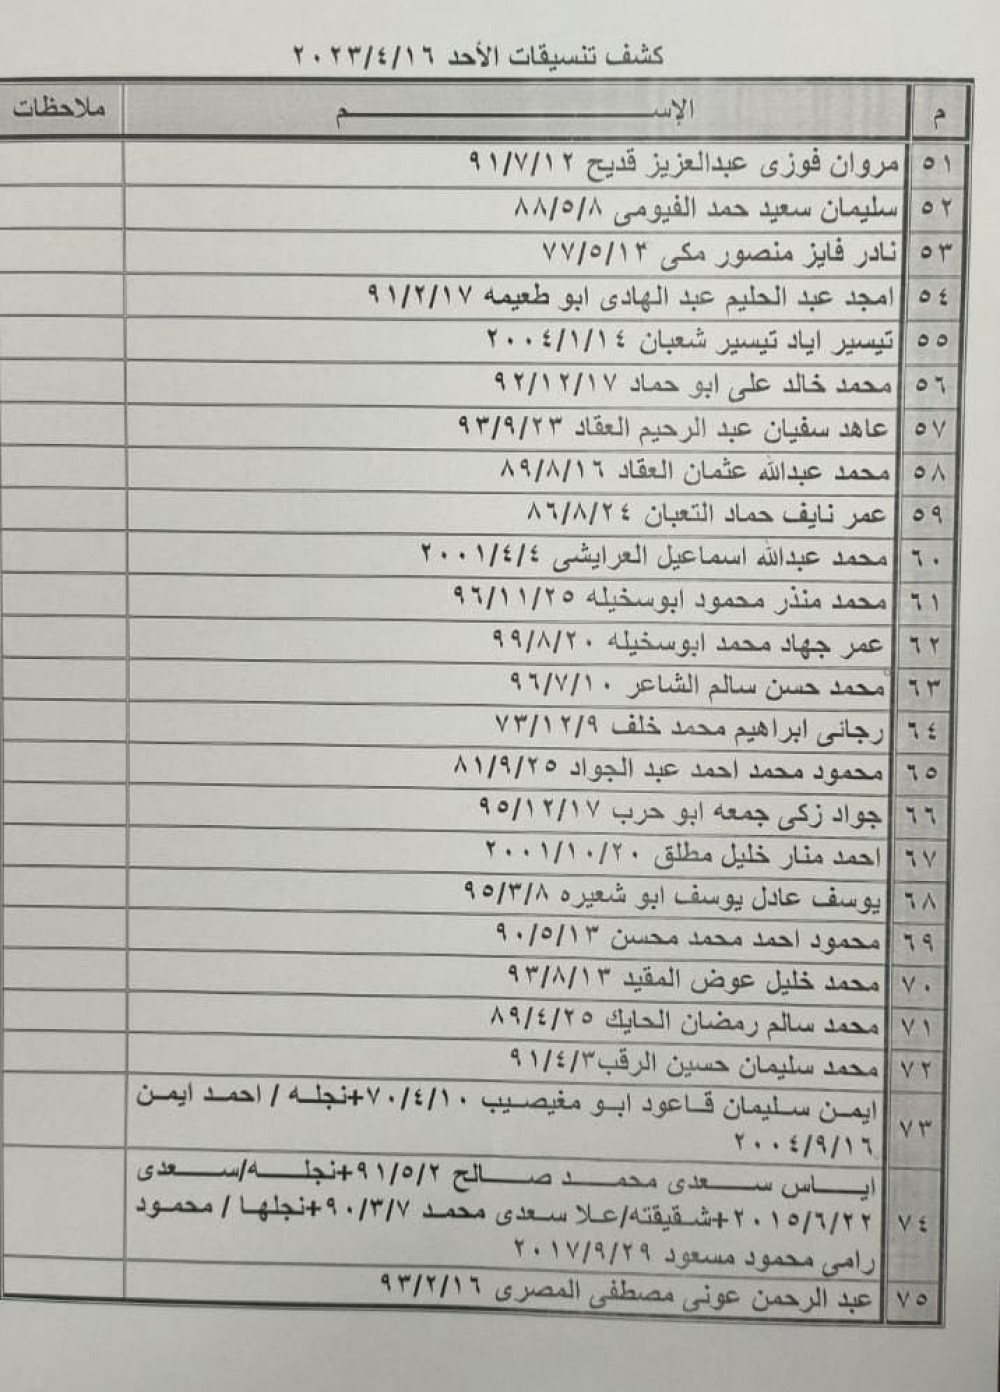 كشف تنسيقات الأحد ٢٠٢٣/٤/١٦
م الإســـــــــم ملاحظات
٥١ مروان فوزى عبدالعزيز قديح ٩١/٧/١٢
٥٢ سليمان سعيد حمد الفيومى ٨٨/٥/٨
٥٣ نادر فايز منصور مكى ٧٧/٥/١٣
٥٤ امجد عبد الحليم عبد الهادى ابو طعيمه ٩١/٢/١٧
٥٥ تيسير اياد تيسير شعبان ٢٠٠٤/١/١٤
٥٦ محمد خالد على ابو حماد ٩٢/١٢/١٧
٥٧ عاهد سفيان عبد الرحيم العقاد ٩٣/٩/٢٣
٥٨ محمد عبدالله عثمان العقاد ٨٩/٨/١٦
٥٩ عمر نايف حماد التعبان ٨٦/٨/٢٤
٦٠ محمد عبدالله اسماعيل العرايشى ٢٠٠١/٤/٤
٦١ محمد منذر محمود ابوسخيله ٩٦/١١/٢٥
٦٢ عمر جهاد محمد ابوسخيله ٩٩/٨/٢٠
٦٣ محمد حسن سالم الشاعر ٩٦/٧/١٠
٦٤ رجائى ابراهيم محمد خلف ٧٣/١٢/٩
٦٥ محمود محمد احمد عبد الجواد ٨١/٩/٢٥
٦٦ جواد زكى جمعه ابو حرب ٩٥/١٢/١٧
٦٧ احمد منار خليل مطلق ٢٠٠١/١٠/٢٠
٦٨ يوسف عادل يوسف ابو شعيره ٩٥/٣/٨
٦٩ محمود احمد محمد محسن ٩٠/٥/١٣
٧٠ محمد خليل عوض المقيد ٩٣/٨/١٣
٧١ محمد سالم رمضان الحايك ٨٩/٤/٢٥
٧٢ محمد سليمان حسين الرقب٩١/٤/٣
٧٣ ايمن سليمان قاعود ابو مغيصيب ٧٠/٤/١٠+نجله / احمد ايمن
٢٠٠٤/٩/١٦
٧٤ اياس سعدى محمد صالح ٩١/٥/٢+نجله/سعدى
٢٠١٥/٦/٢٢+شقيقته/علا سعدى محمد ٩٠/٣/٧+نجلها / محمود
رامى محمود مسعود ٢٠١٧/٩/٢٩
٧٥ عبد الرحمن عونى مصطفى المصرى ٩٣/٢/١٦